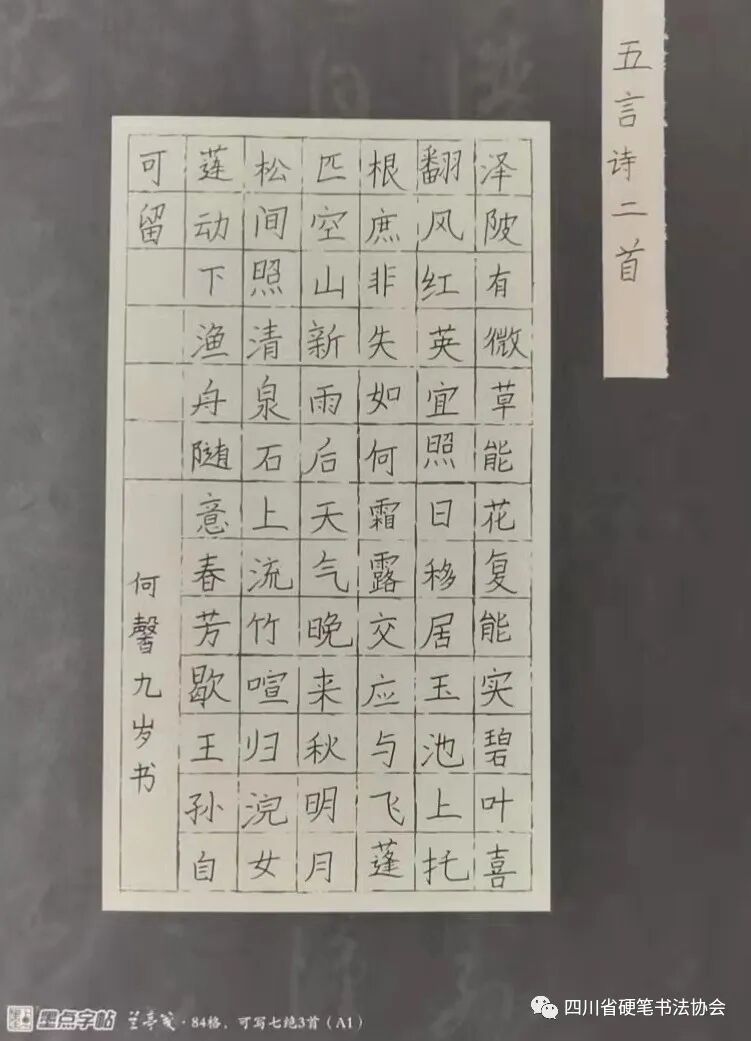 五言诗二首
泽陂有微草能花复能实碧叶喜
翻风红英宜照日移居玉池上托
根庶非失如何霜露交应与飞蓬
匹空山新雨后天气晚来秋明月
松间照清泉石上流竹喧归浣女
莲动下渔舟随意春芳歇王孙自
可留
何馨九岁书
墨点字帖 兰亭笺·84格，可写七绝3首（A1）
四川省硬笔书法协会